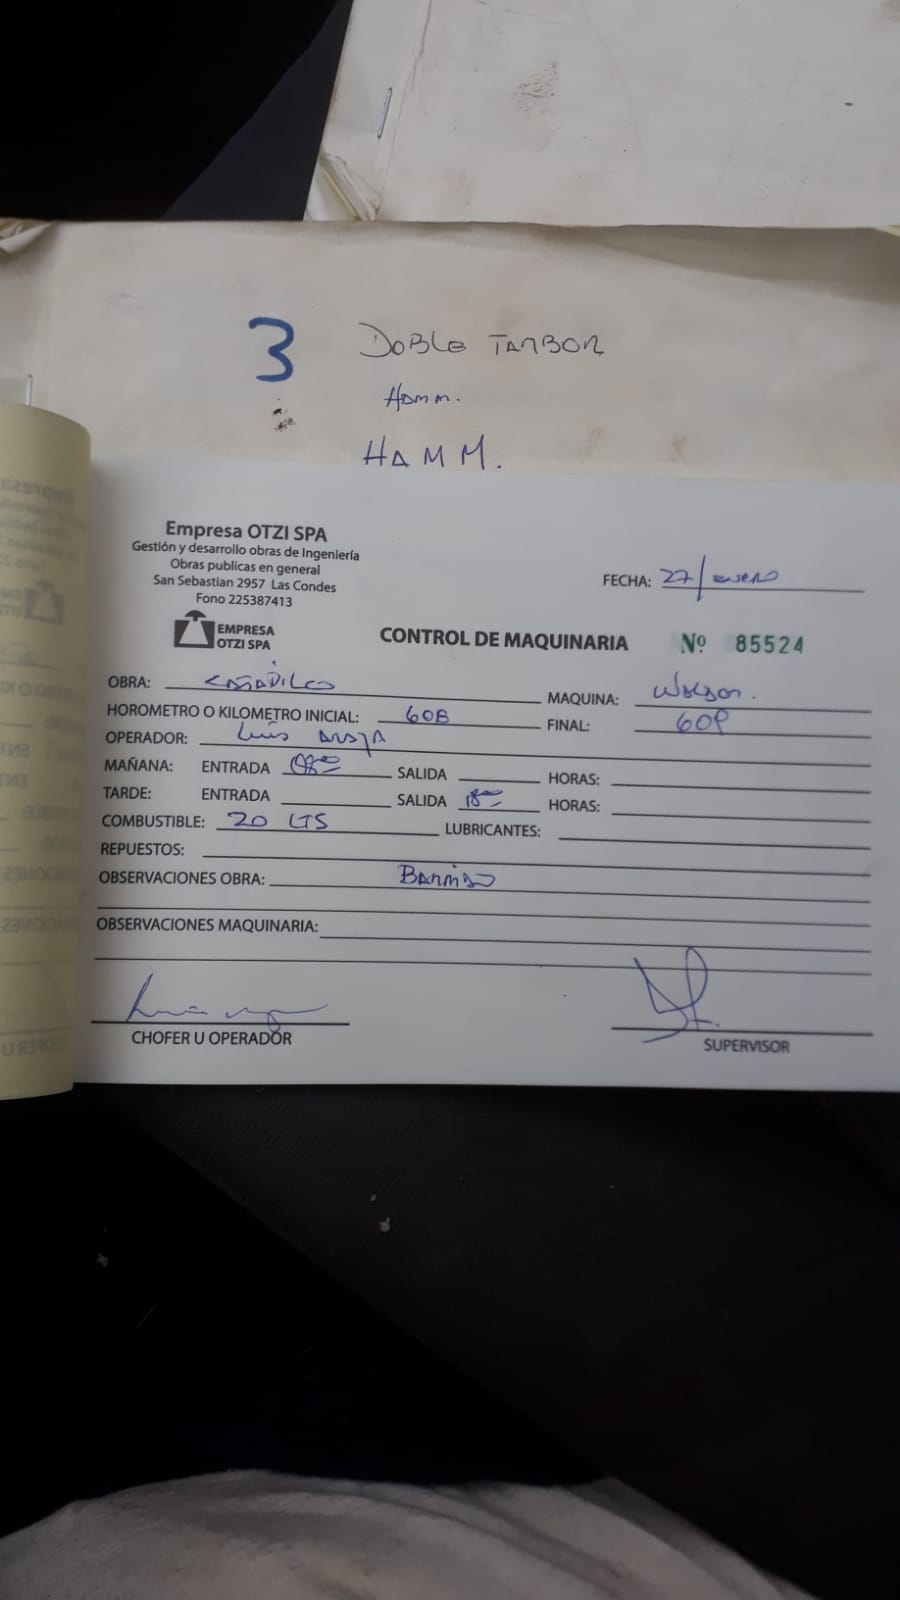 3 DOBLE TAMBOR
HAMM.
HAMM.
Empresa OTZI SPA
Gestión y desarrollo obras de Ingeniería
Obras publicas en general
San Sebastian 2957 Las Condes
Fono 225387413
EMPRESA
OTZI SPA
FECHA: 27/enero
CONTROL DE MAQUINARIA Nº 85524
OBRA:
MAQUINA:
HOROMETRO O KILOMETRO INICIAL: 608 FINAL: 609
OPERADOR: Luis Araya
MAÑANA: ENTRADA 08:00 SALIDA HORAS:
TARDE: ENTRADA SALIDA 18:00 HORAS:
COMBUSTIBLE: 20 LTS LUBRICANTES:
REPUESTOS:
OBSERVACIONES OBRA: Barrido
OBSERVACIONES MAQUINARIA:
CHOFER U OPERADOR
SUPERVISOR